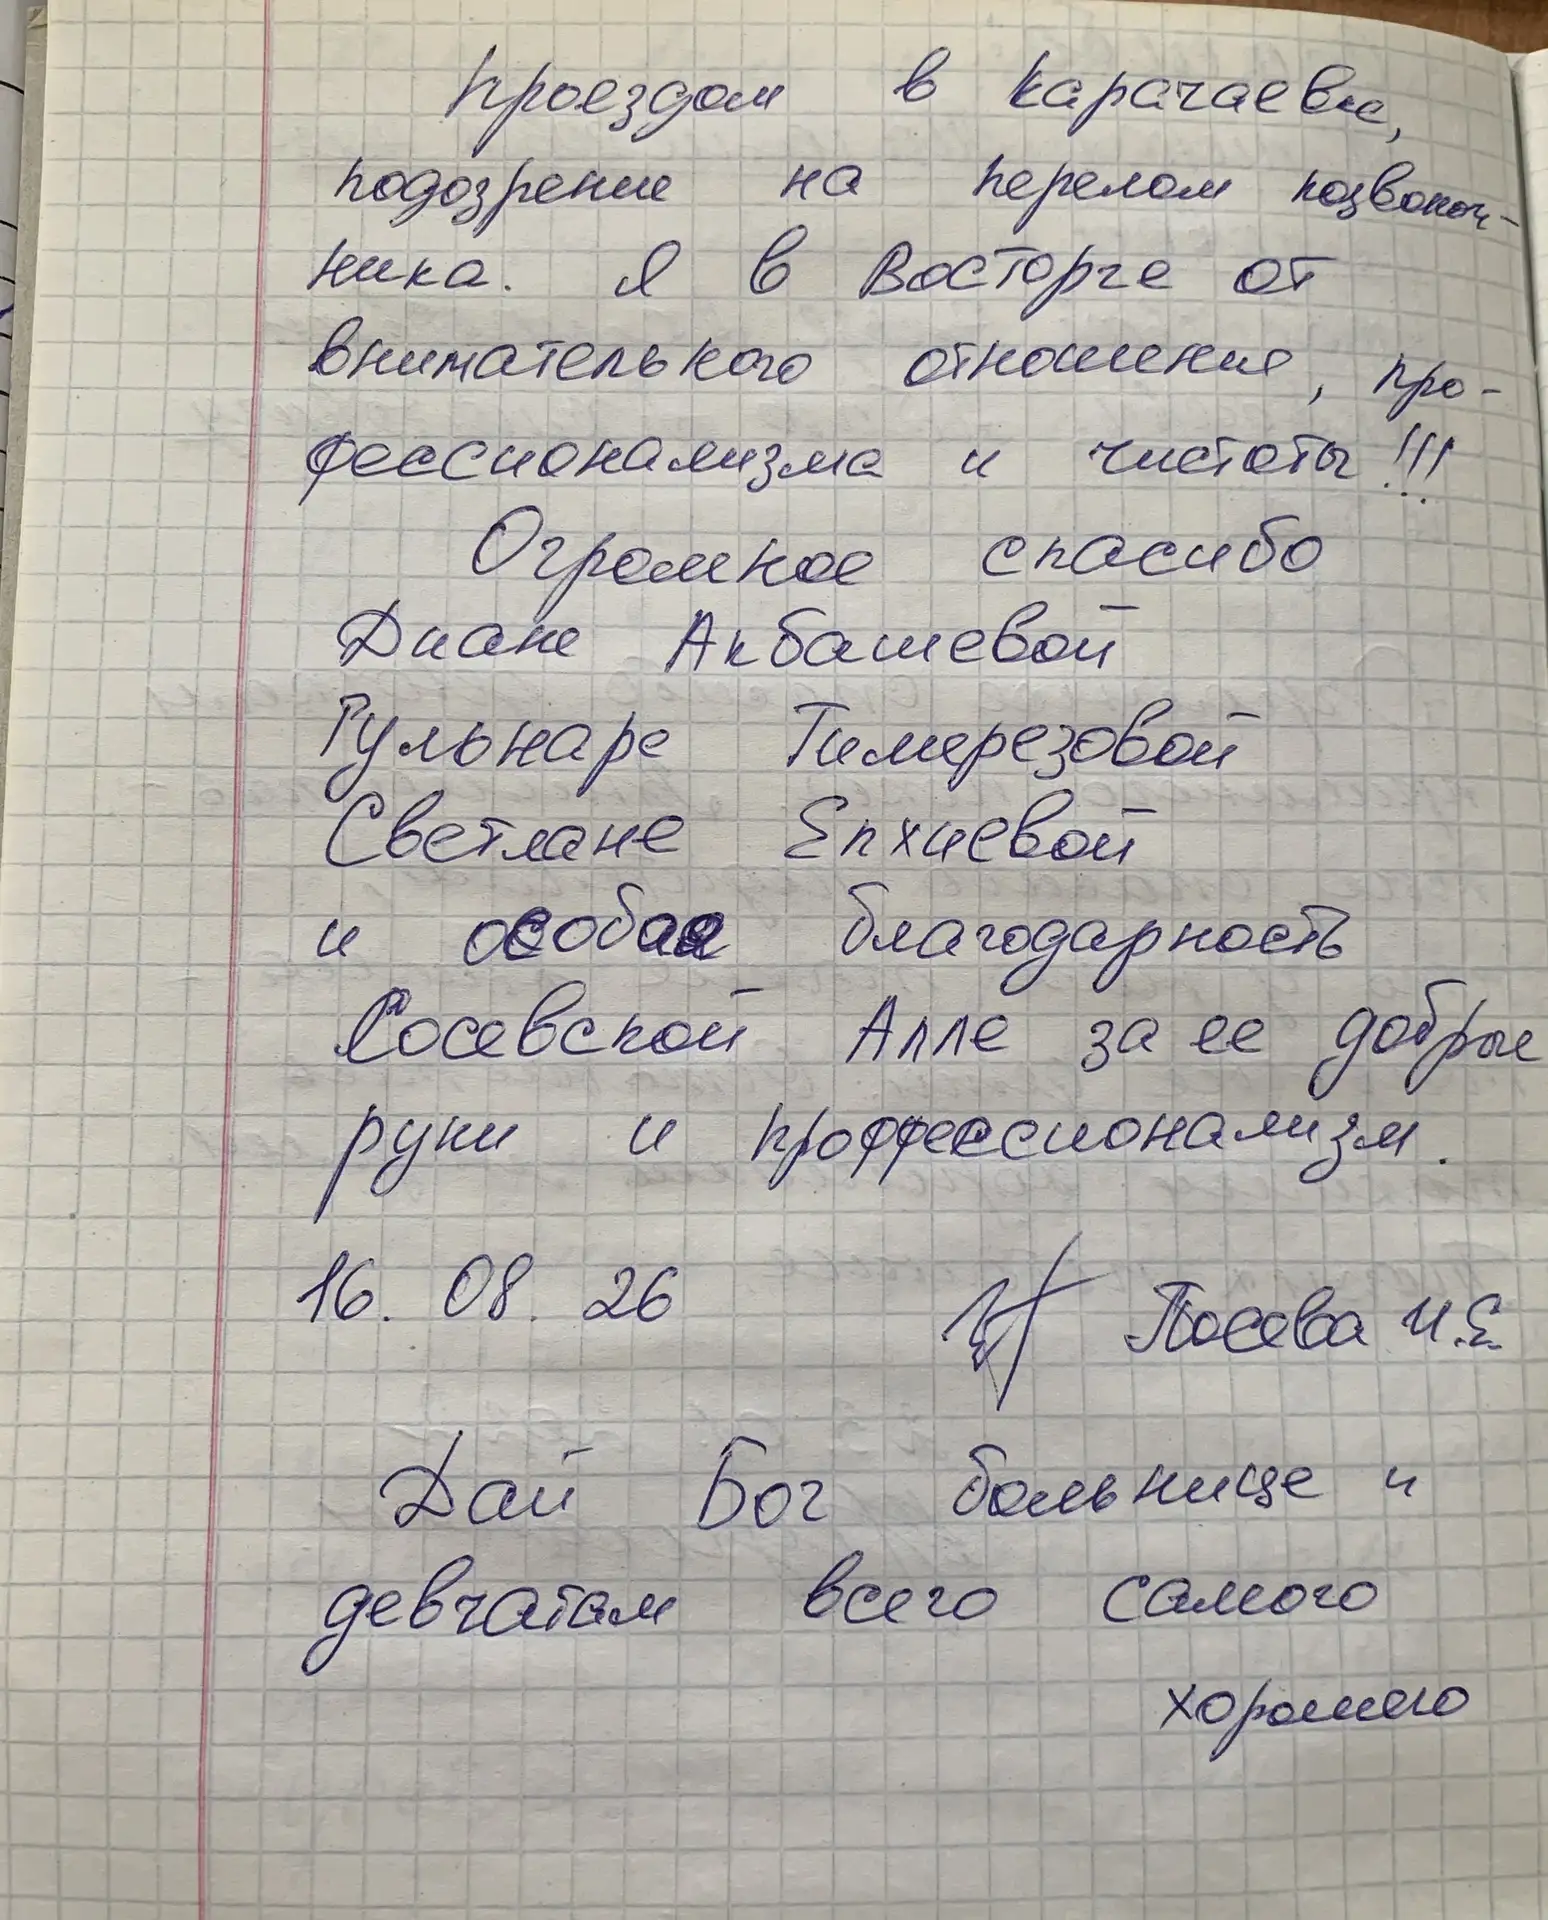 Проездом в Карачаевке,
подозрение на перелом позвоноч-
ника. Я в Восторге от
внимательного отношения, про-
фессионализма и чистоты!!!
Огромное спасибо
Диане Акбашевой
Гульнаре Тимерезовой
Светлане Епхиевой
и особая благодарность
Сосевской Алле за ее добрые
руки и проффессионализм.
16. 08. 26 Посева И.Е.
Дай Бог больнице и
девчатам всего самого
хорошего